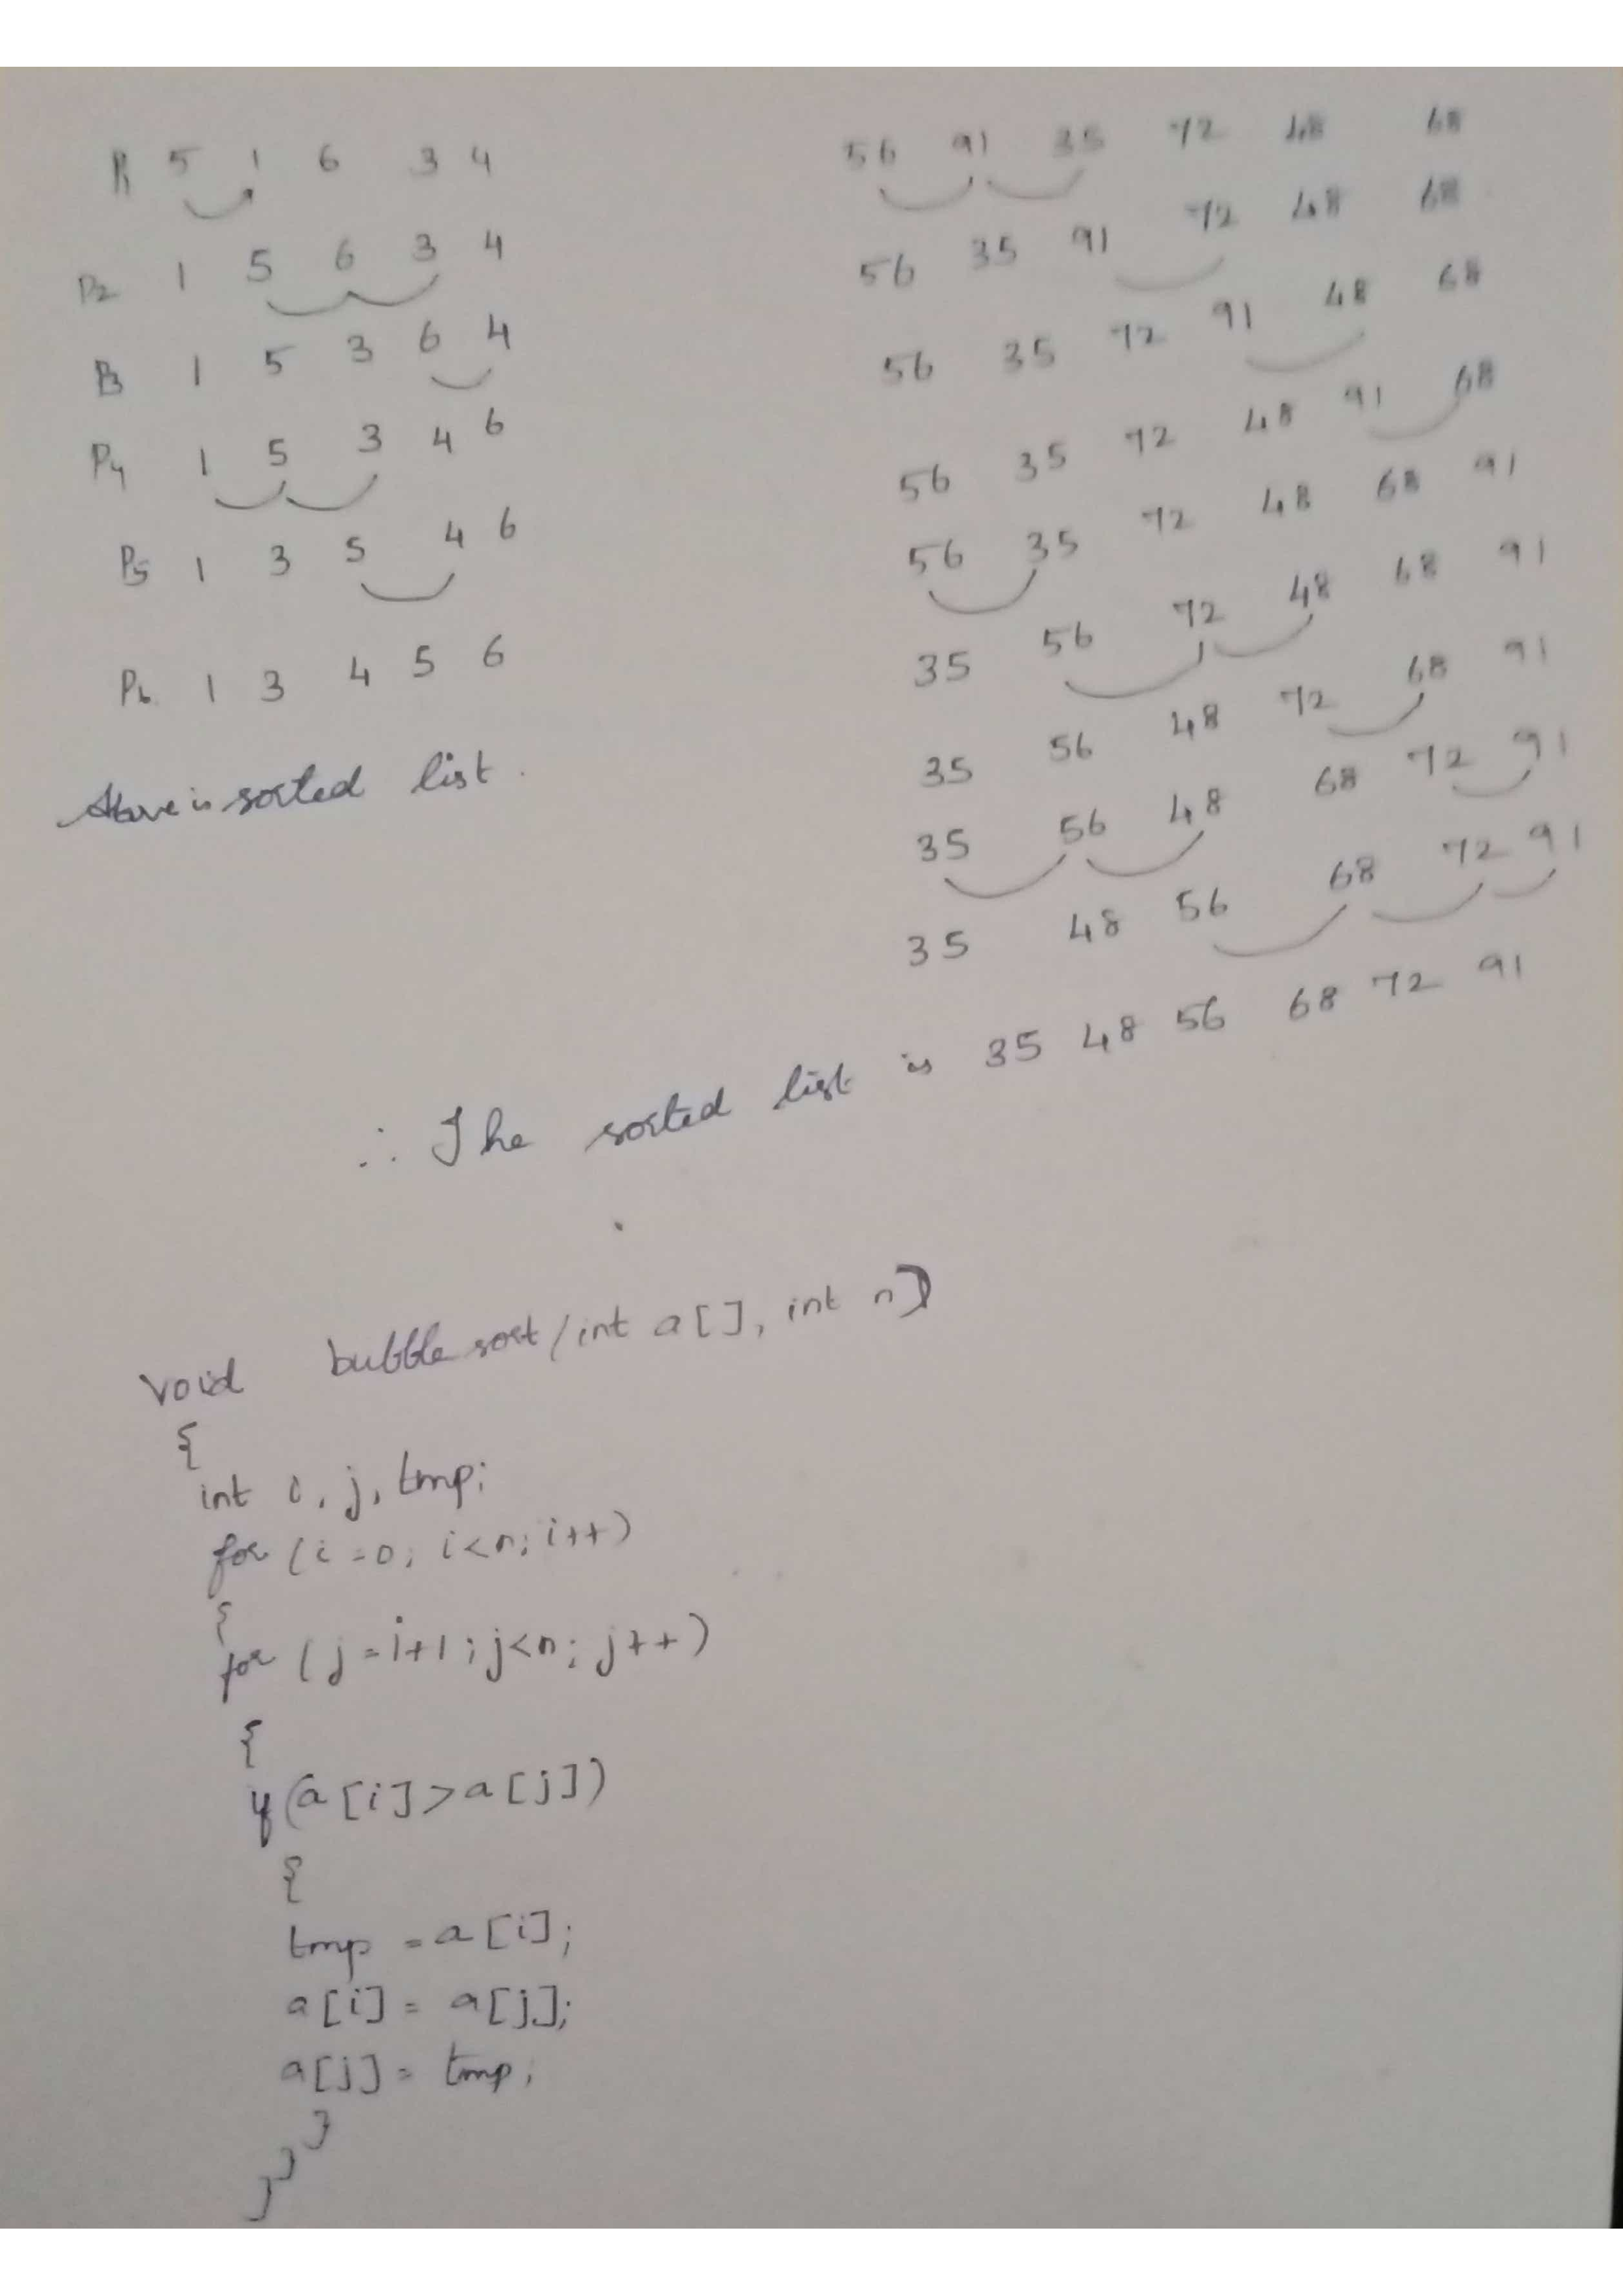 P1 5 1 6 3 4
P2 1 5 6 3 4
P3 1 5 3 6 4
P4 1 5 3 4 6
P5 1 3 5 4 6
P6 1 3 4 5 6
Above is sorted list.
56 91 35 72 48 68
56 35 91 72 48 68
56 35 72 91 48 68
56 35 72 48 91 68
56 35 72 48 68 91
35 56 72 48 68 91
35 56 48 72 68 91
35 56 48 68 72 91
35 48 56 68 72 91
∴ The sorted list is 35 48 56 68 72 91
void bubble sort (int a[], int n)
{
int i, j, tmp;
for (i=0; i<n; i++)
{
for (j=i+1; j<n; j++)
{
if (a[i]>a[j])
{
tmp = a[i];
a[i] = a[j];
a[j] = tmp;
}
}
}